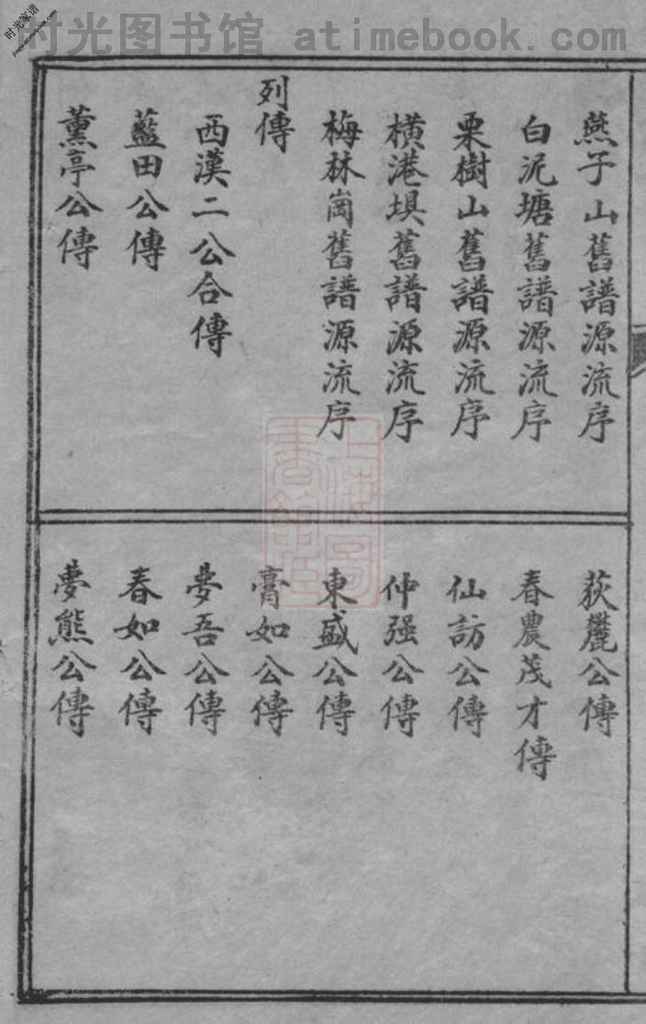 时光图书馆 atimebook.com
燕子山舊譜源流序
白泥塘舊譜源流序
栗樹山舊譜源流序
橫港埧舊譜源流序
梅林崗舊譜源流序
列傳
西漢二公合傳
藍田公傳
薰亭公傳
荻麓公傳
春農茂才傳
仙訪公傳
仲强公傳
東盛公傳
膏如公傳
夢吾公傳
春如公傳
夢熊公傳